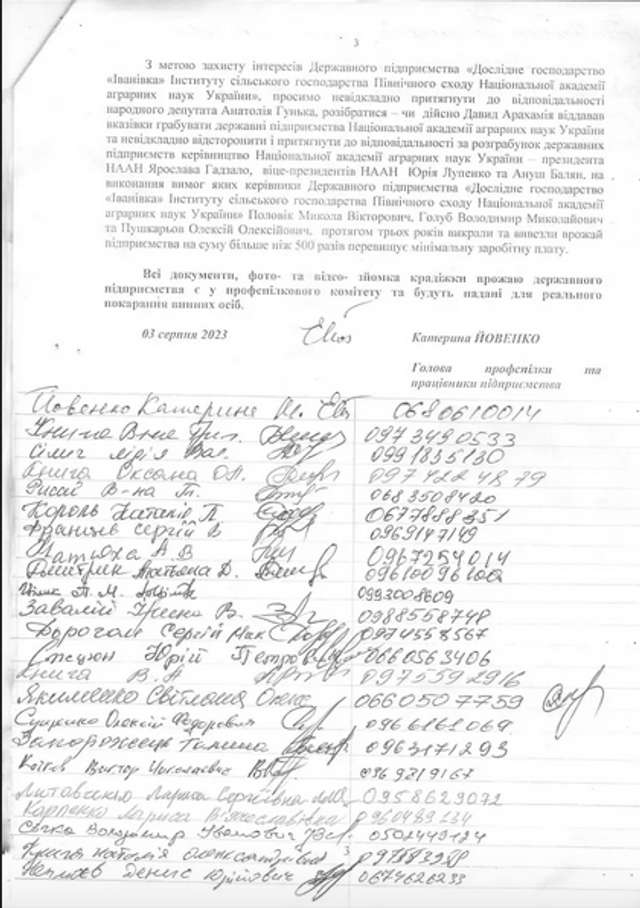 3
З метою захисту інтересів Державного підприємства «Дослідне господарство
«Іванівка» Інституту сільського господарства Північного сходу Національної академії
аграрних наук України», просимо невідкладно притягнути до відповідальності
народного депутата Анатолія Гунька, розібратися – чи дійсно Давид Арахамія віддавав
вказівки грабувати державні підприємства Національної академії аграрних наук України
та невідкладно відсторонити і притягнути до відповідальності за розграбунок державних
підприємств керівництво Національної академії аграрних наук України – президента
НААН Ярослава Гадзало, віце-президентів НААН Юрія Лупенко та Ануш Балян, на
виконання вимог яких керівники Державного підприємства «Дослідне господарство
«Іванівка» Інституту сільського господарства Північного сходу Національної академії
аграрних наук України» Половік Микола Вікторович, Голуб Володимир Миколайович
та Пушкарьов Олексій Олексійович, протягом трьох років викрали та вивезли врожай
підприємства на суму більше ніж 500 разів перевищує мінімальну заробітну плату.
Всі документи, фото- та відео- зйомка крадіжки врожаю державного
підприємства є у профспілкового комітету та будуть надані для реального
покарання винних осіб.
03 серпня 2023 Катерина ЙОВЕНКО
Голова профспілки та
працівники підприємства
Йовенко Катерина М. 0680610014
Книга 0973490533
0991835130
Книга Оксана О.П. 0974224879
0683508420
Король Наталія П. 0677888351
Сергій В 0969147149
А.В 0967254014
Дмитрик Татьяна Д.
0993008609
Завалій В. 0988558748
Дорогань Сергій 0974558567
Юрій Петрович 0660563406
Книга В.А 0975592916
Якименко Світлана 0660507759
Сущенко Олексій Федорович 0966161069
Запорожець Галина 0963171293
Віктор Миколаевич
Литовченко Лариса Сергіївна 0958629072
Карпенко Лариса В'ячеславівна 0960489234
Володимир Іванович 0502449124
3
Наталія Олександрівна
Денис Юрійович 0674626233